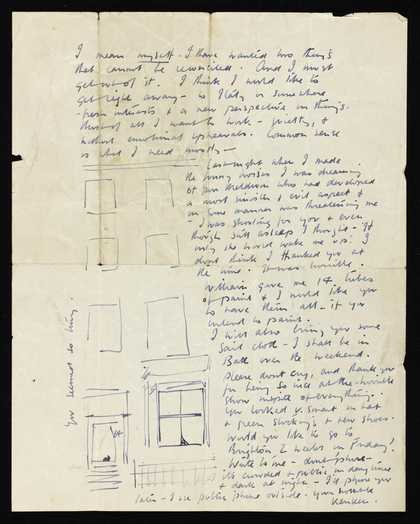 I mean myself - I have wanted two things
that cannot be reconciled. And I must
get out of it. I think I would like to
get right away - to Italy or somewhere
- fresh interests & a new perspective on things.
Most of all I want to work - quietly, &
without emotional upheavals. Common sense
is what I need mostly -
Last night when I made
the funny noises I was dreaming
of
who had developed
a most sinister & evil aspect &
in some manner was threatening me
- I was shouting for you & even
though still asleep I thought - If
only she would wake me up! I
don't think I thanked you at
the time. It was horrible.
William gave me 14 tubes
of paint & I would like you
to have them all - if you
intend to paint.
I will also bring you some
sail cloth - I shall be in
Bath over the weekend.
Please don't cry, and thank you
for being so nice at the horrible
show inspite of everything.
You looked so smart in hat
& green stockings & new shoes.
Would you like to go to
Brighton 2 weeks on Friday?
Write to me - don't phone -
it's crowded & public in day time
& dark at night - I'll phone you
later - I use public phone outside. Your horrible
You seemed so tiny.